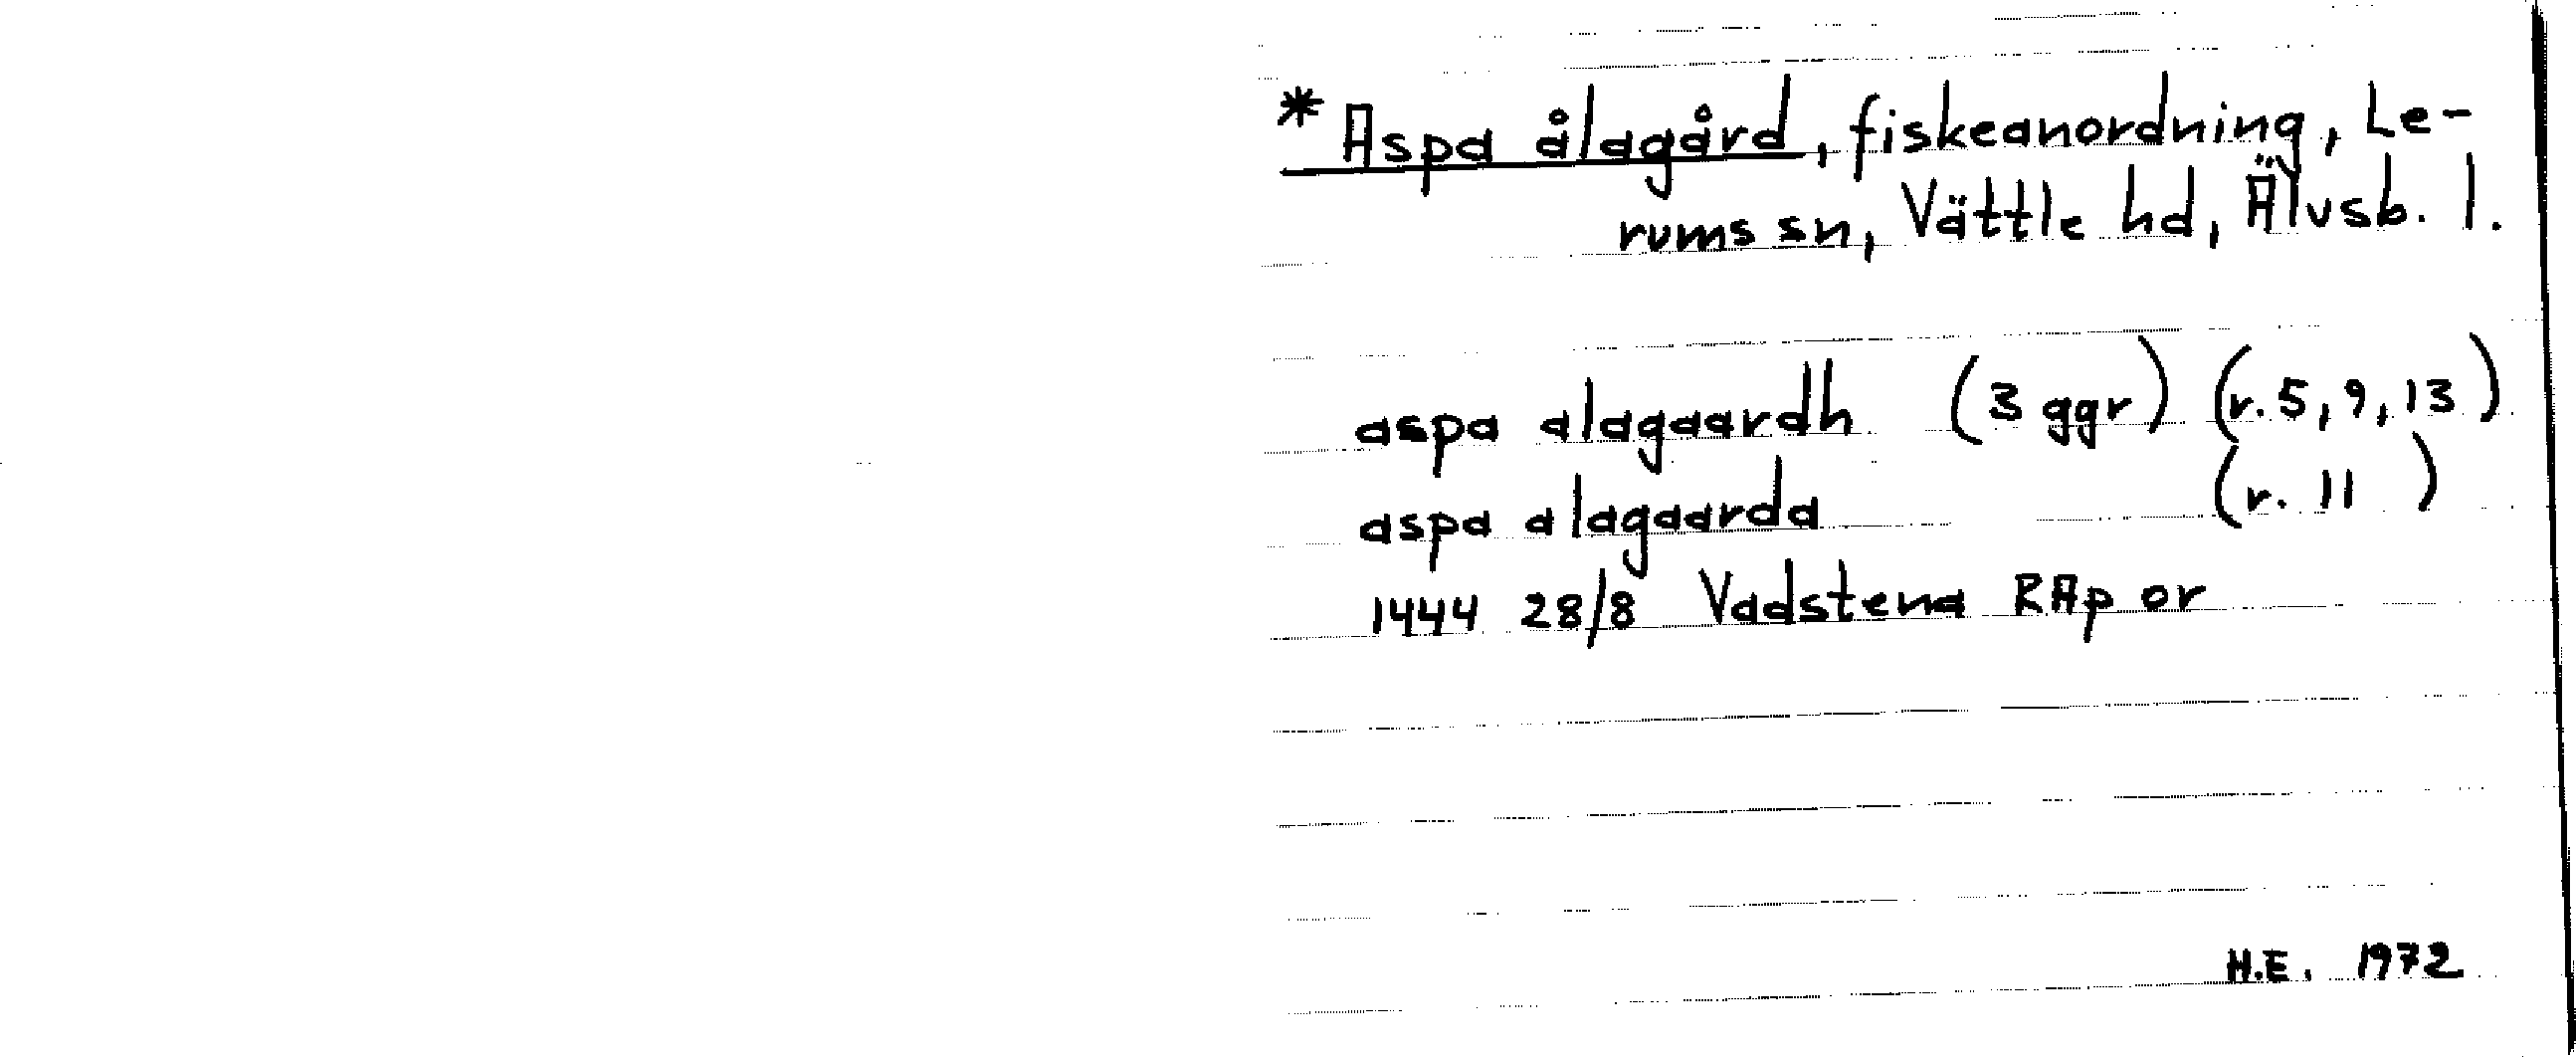 * Aspa ålagård, fiskeanordning, Le-
rums sn, Vättle hd, Älvsb. l.
aspa alagaardh (3 ggr) (r. 5, 9, 13)
aspa alagaarda (r. 11 )
1444 28/8 Vadstena RAp or
H.E. 1972